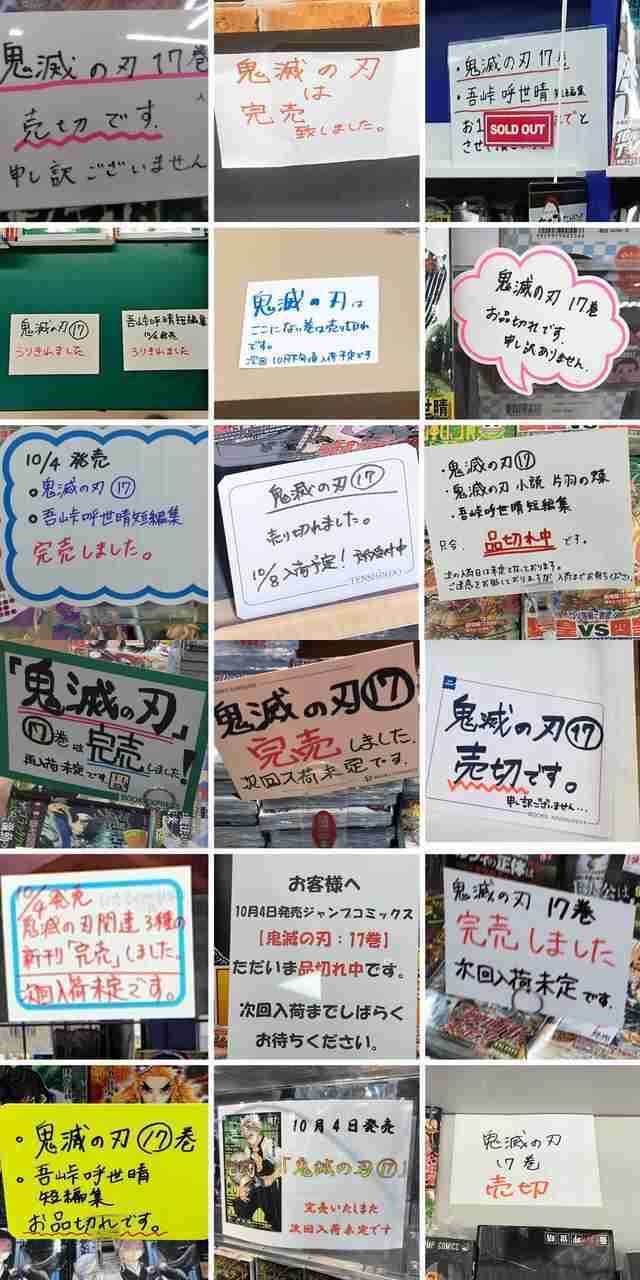 鬼滅の刃 17巻
売切です.
申し訳ございません
鬼滅の刃
は
完売
致しました。
・鬼滅の刃 17巻
・吾峠呼世晴 短編集
SOLD OUT
鬼滅の刃⑰
うりきれました
吾峠呼世晴短編集
うりきれました
鬼滅の刃は
ここにない巻は売り切れ
です。
次回 10月下旬頃入荷予定です
鬼滅の刃 17巻
お品切れです.
申し訳ありません.
10/4 発売
鬼滅の刃 ⑰
吾峠呼世晴短編集
完売しました。
鬼滅の刃 ⑰
売り切れました。
10/8 入荷予定! 予約受付中
TENSHINDO
・鬼滅の刃⑰
・鬼滅の刃 小説 片羽の蝶
・吾峠呼世晴短編集
只今、品切れ中 です。
次の入荷日は未定となっております。
VS
「鬼滅の刃」
⑰巻は完売しました!
再入荷未定です
鬼滅の刃⑰
完売しました.
次回入荷未定です.
鬼滅の刃⑰
売切です。
申し訳ございません...
10/4発売
鬼滅の刃関連3種の
新刊「完売」しました。
次回入荷未定です。
お客様へ
10月4日発売ジャンプコミックス
【鬼滅の刃:17巻】
ただいま品切れ中です。
次回入荷までしばらく
お待ちください。
鬼滅の刃 17巻
完売しました
次回入荷未定です.
鬼滅の刃⑰巻
吾峠呼世晴
短編集
お品切れです。
10月4日発売
「鬼滅の刃⑰」
完売いたしました
次回入荷未定です
鬼滅の刃
17巻
売切
JUMP COMICS